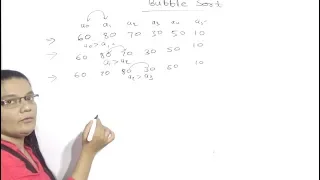 Bubble Sort
a0 a1 a2 a3 a4 a5
60 80 70 30 50 10
a0 > a1
60 80 70 30 50 10
a1 > a2
60 70 80 30 60 10
a2 > a3